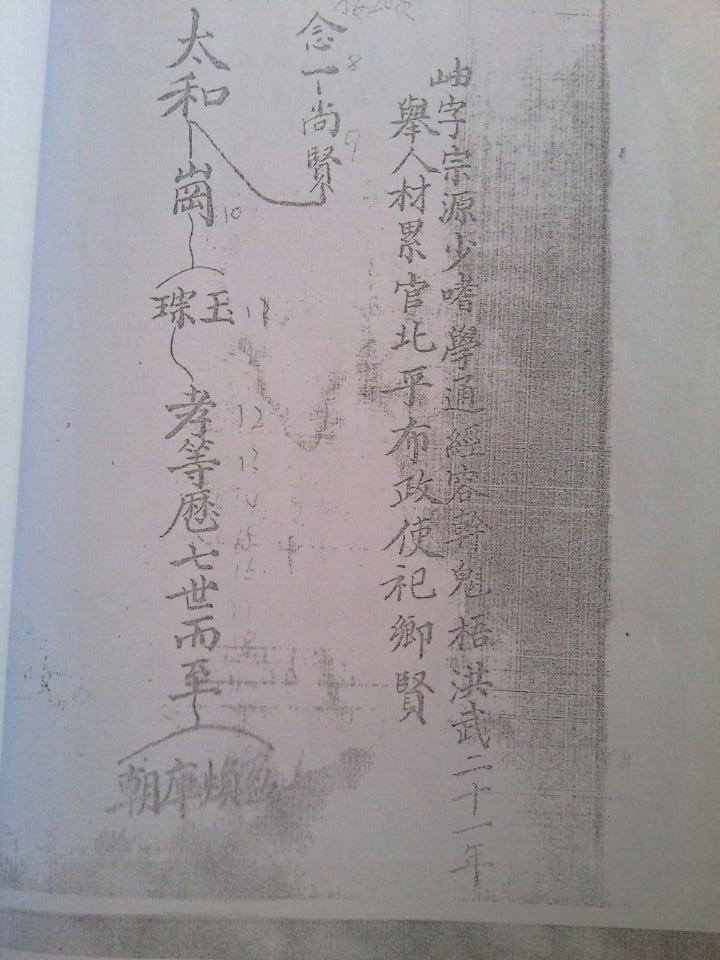 岫字宗源少嗜學通經容幹魁梧洪武二十一年
舉人材累官北平布政使祀鄉賢
念一 8 尚賢 9
太和
崗 10
玉 琮 11
孝等歷七世而至
12
13
朝庠煩